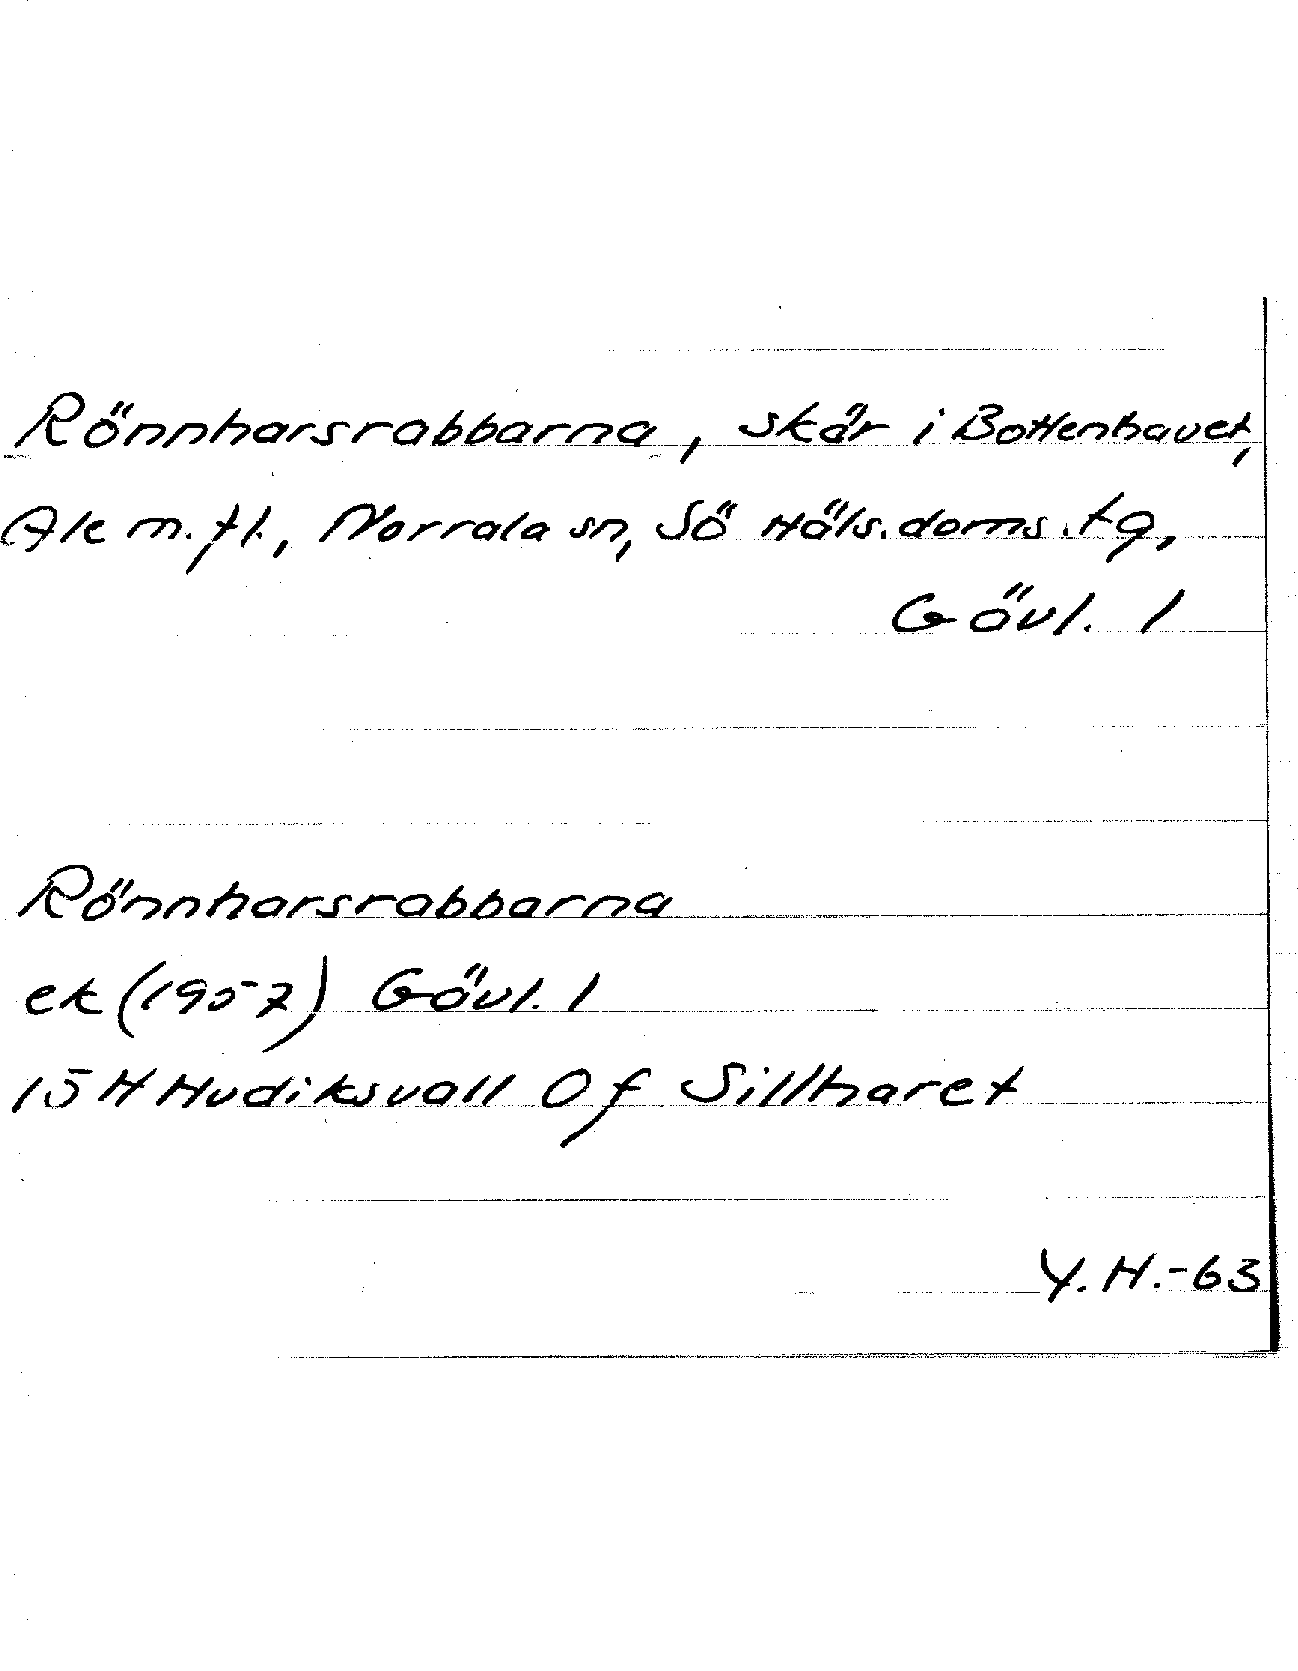 Rönnharsrabbarna, skär i Bottenhavet,
Ale m.fl., Norrala sn, Sö Häls. doms. tg,
Gävl. l
Rönnharsrabbarna
ek (1957) Gävl. l
15 H Hudiksvall 0 f Sillharet
Y.H.-63